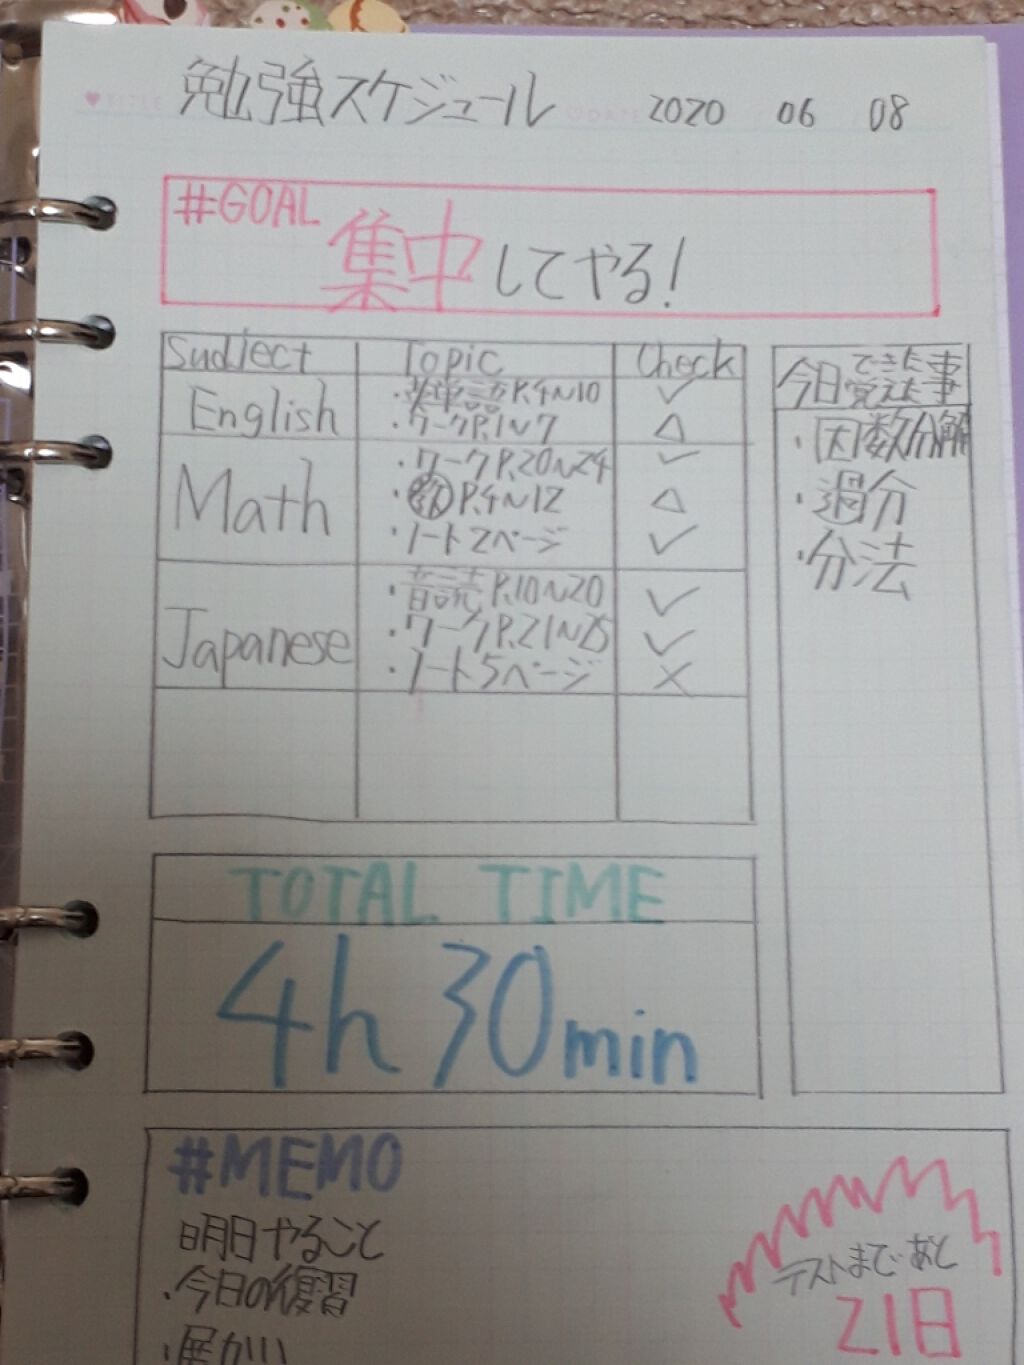 勉強スケジュール 2020 06 08
#GOAL
集中してやる!
Sudject Topic Check
English
・英単語P.4~10 ✓
・ワークP.1~7 △
Math
・ワークP.20~24 ✓
・数P.4~12 △
・ノート2ページ ✓
Japanese
・音読P.10~20 ✓
・ワークP.21~25 ✓
・ノート5ページ ×
今日できた事
覚えた事
・因数分解
・過分
・分法
TOTAL TIME
4h 30min
#MEMO
明日やること
・今日の復習
テストまであと
21日